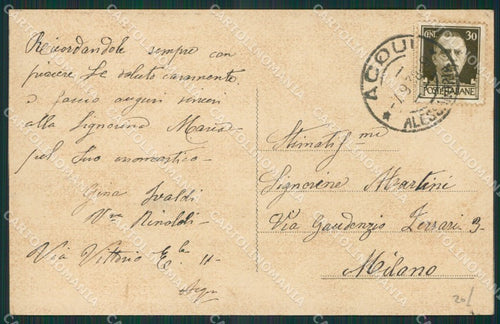 Ricordandole sempre con
piacere Le saluto caramente
e faccio auguri sinceri
alla Signorina Maria
pel Suo onomastico.
Gina Ivaldi
Rinaldi
Via Vittorio E. 11
Acqui
CENT. 30
POSTE ITALIANE
ACQUI
ALESS
Stimatis.me
Signorine Martini
Via Gaudenzio Ferrari 9
Milano
20/
CARTOLINOMANIA